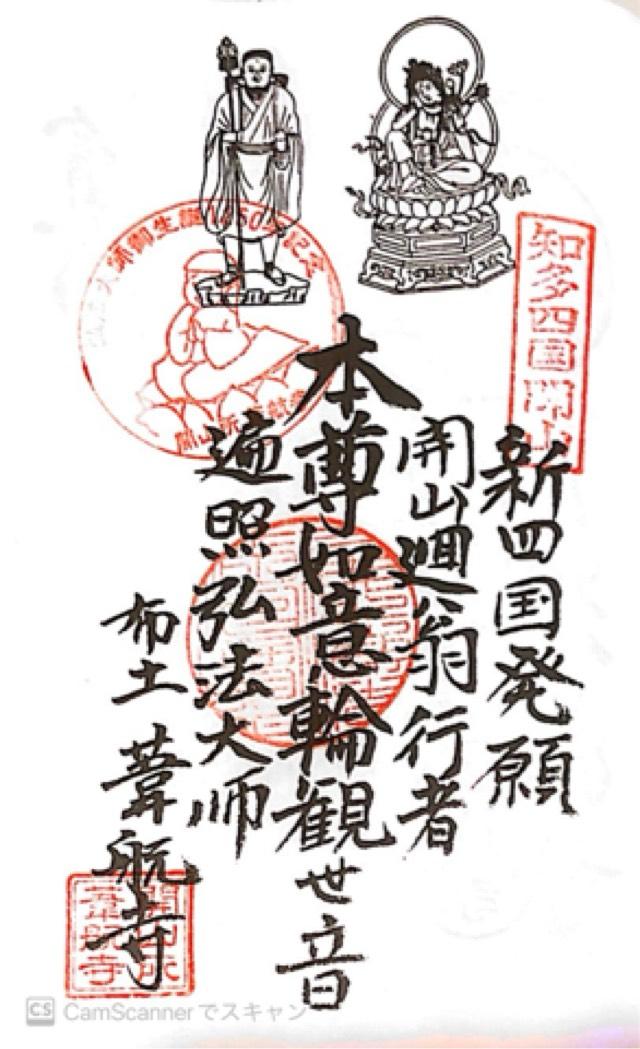 知多四国開山
新四国発願
開山廻翁行者
本尊如意輪観世音
遍照弘法大師
布土 葦航寺
大師御生誕1250年記念
葦航寺
CS CamScannerでスキャン